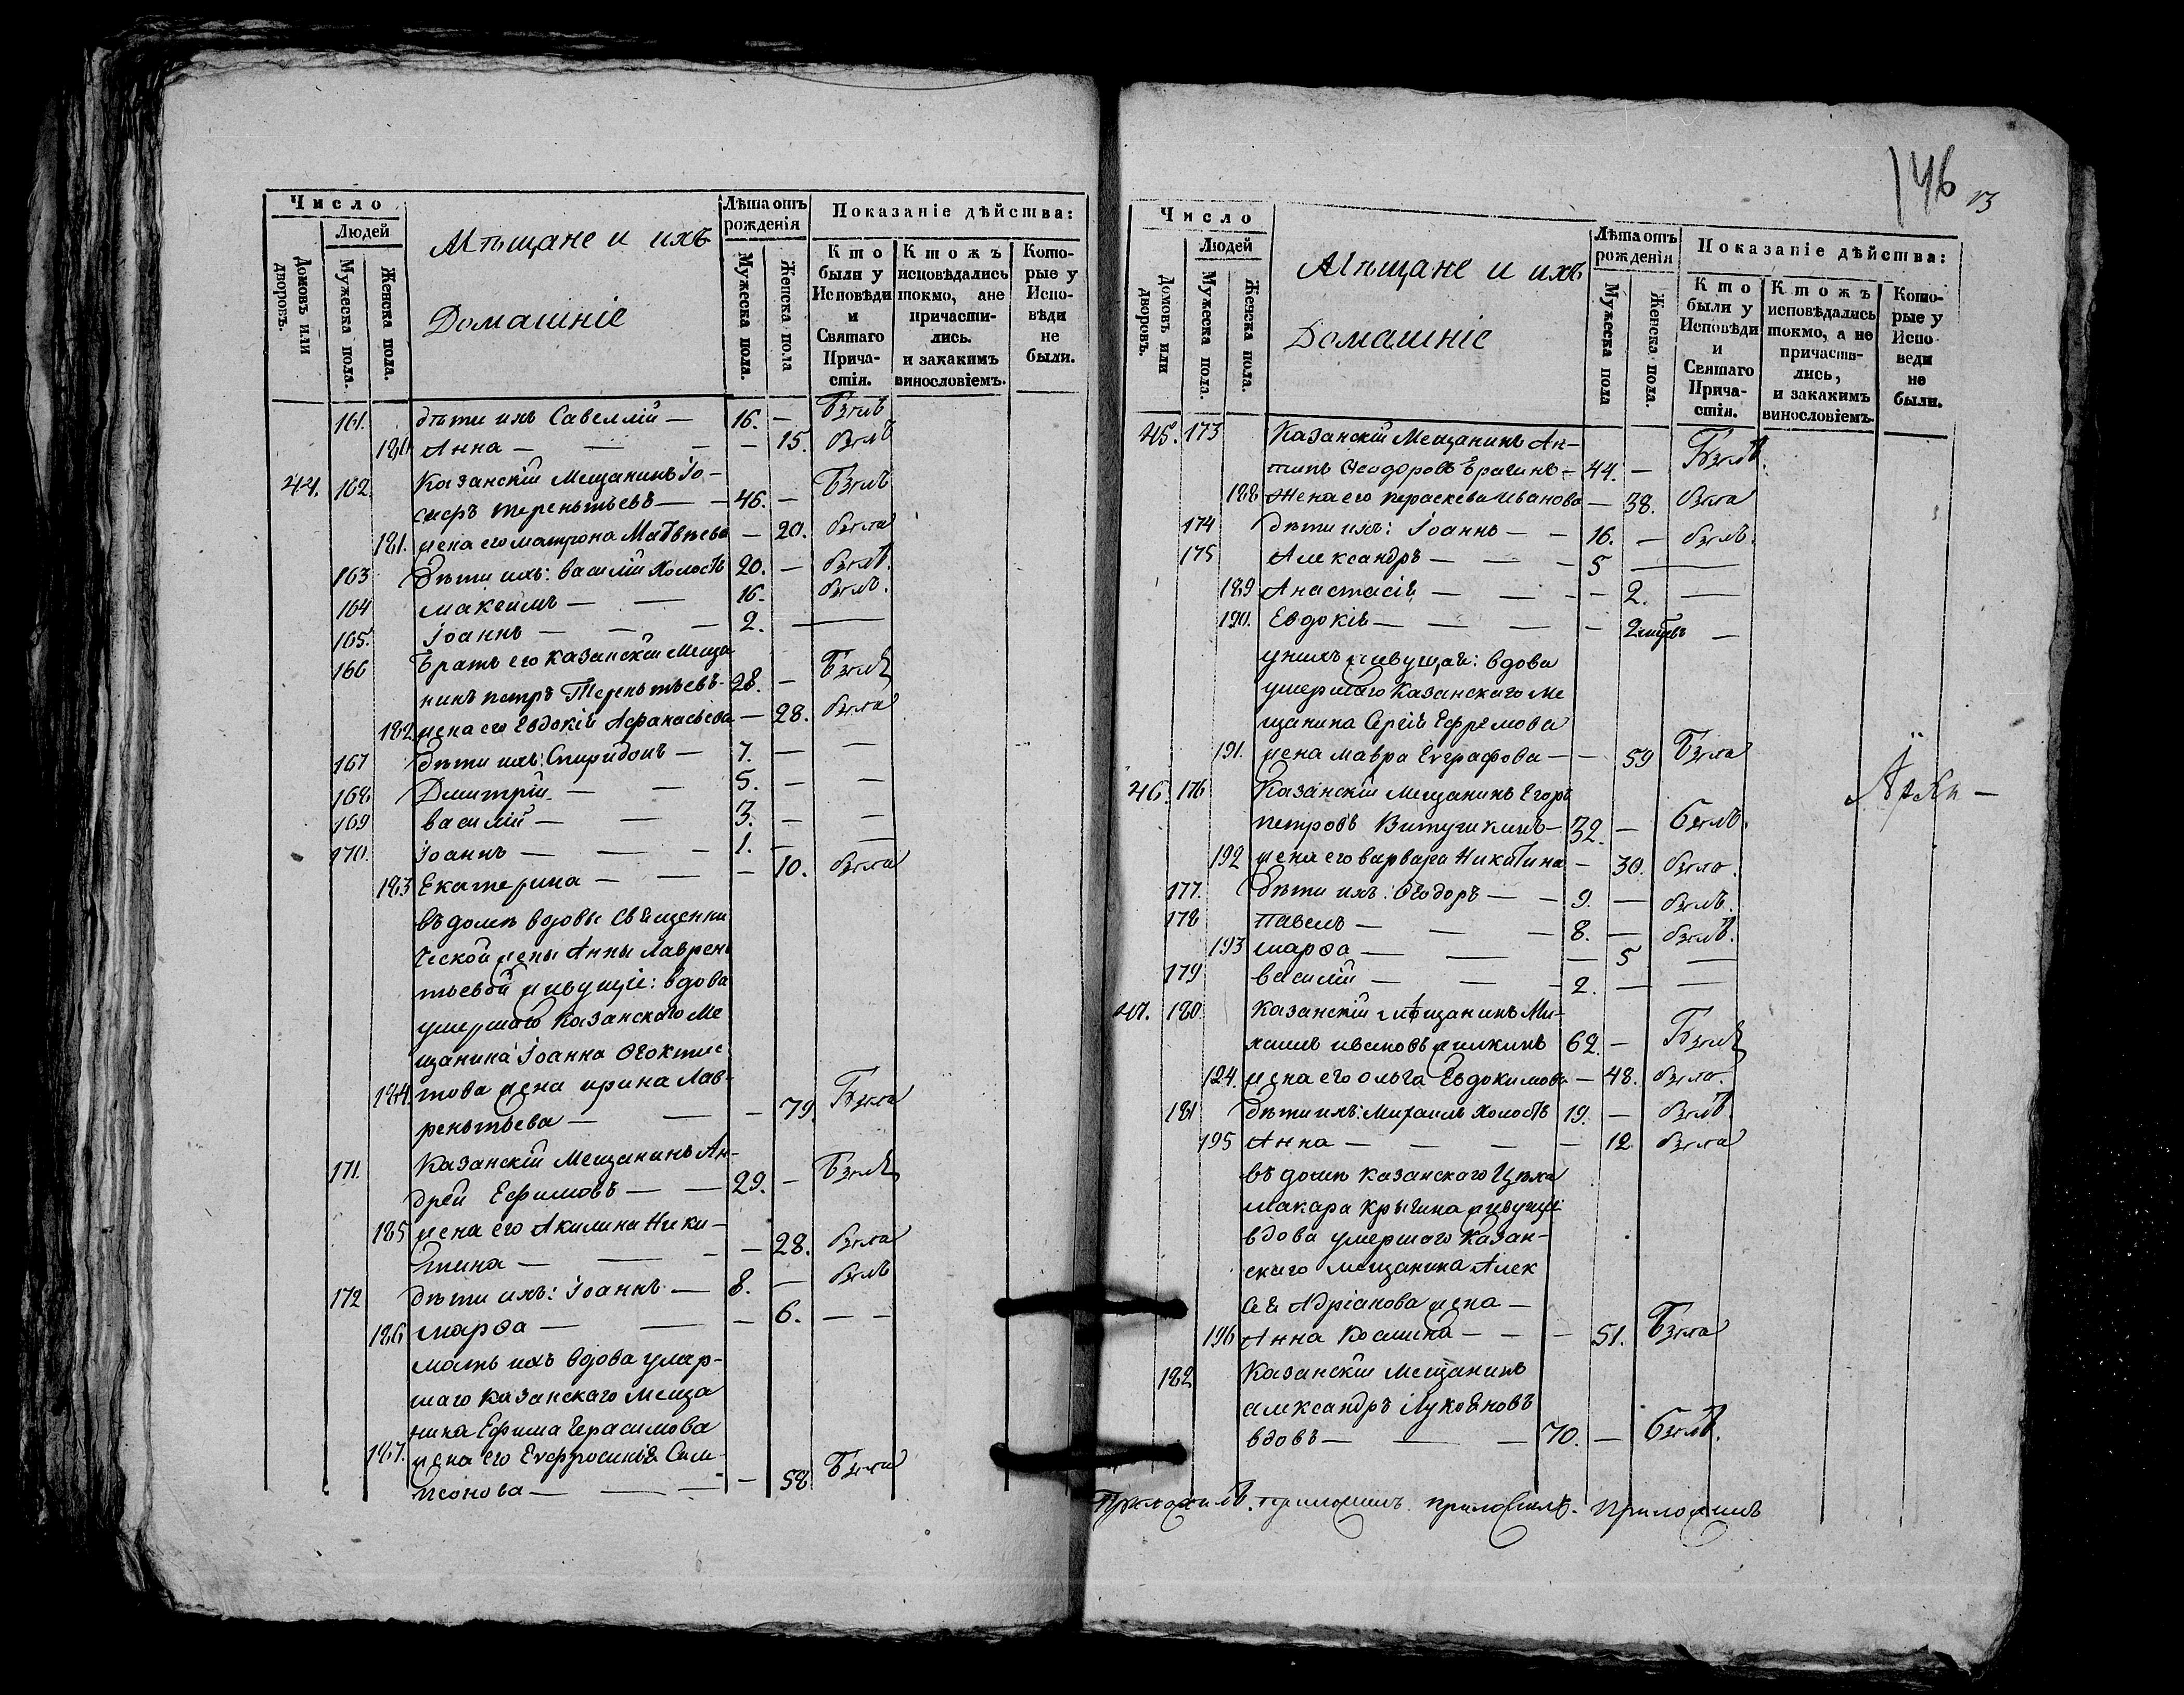 Число
Людей
Домовъ или дворовъ.
Мужеска пола.
Женска пола.
Мѣщане и ихъ
Домашніе
Лѣта отъ рожденія
Мужеска пола.
Женска пола
Показаніе дѣйства:
Кто были у Исповѣди и Святаго Причастія.
Ктожъ исповѣдались токмо, а не причастились. и за какимъ винословіемъ.
Которые у Исповѣди не были.
161. дѣти ихъ Савеллій — 16. — Былъ
180 Анна — — — — 15. былъ
44. 162 Казанскій Мещанинъ Іо-
сифъ терентьевъ — — 46. — Былъ
181. жена его матрона Матвѣева — 20. была
163 Дѣти ихъ: василій холостъ 20. — былъ.
164 максимъ — — 16. былъ.
165. Іоаннъ — — — 2. —
166 Братъ его казанскій меща
нинъ петръ Терентьевъ 28. — Былъ
182 жена его Евдокія Афанасьева — 28. была
167 Дѣти ихъ: Спиридонъ — 7. — —
168 Дмитрій — — 5. — —
169 василій — — 3. — —
170. Іоаннъ — — — 1. — —
183 Екатерина — — — 10. была
въ домѣ вдовы священни
ческой жены Анны Лаврен
тьевой живущіе: вдова
умершаго казанскаго ме
щанина Іоанна Ѳеоктис
184. това жена ирина Лав-
рентьева — — — 79. Была
171. Казанскій Мещанинъ Ан-
дрей Ефимовъ — — 29. — Былъ
185 жена его Акилина Ники-
тина — — — — 28. была
172 дѣти ихъ: Іоаннъ — 8. — былъ
186 марѳа — — — 6. — —
мать ихъ вдова умер-
шаго казанскаго меща
нина Ефима Герасимова
187. жена его Евфросинія Сам-
псонова — — — — 58 Была
146
Число
Людей
Домовъ или дворовъ.
Мужеска пола.
Женска пола.
Мѣщане и ихъ
Домашніе
Лѣта отъ рожденія
Мужеска пола
Женска пола.
Показаніе дѣйства:
Кто были у Исповѣди и Святаго Причастія.
Ктожъ исповѣдались токмо, а не причастились, и за какимъ винословіемъ.
Которые у Исповеди не были.
45. 173 Казанскій Мещанинъ Ан-
типъ Ѳеодоровъ Брагинъ — 44. — Былъ.
188 жена его параскева Иванова — 38. была
174 дѣти ихъ: Іоаннъ — — 16. — былъ.
175 Александръ — — — 5 —
189 Анастасія — — — — 2. —
190. Евдокія — — — — 2 —
у нихъ живущая: вдова
умершаго казанскаго ме
щанина Сергія Ефремова
191. жена мавра Евграфова — — 59 Была
46. 176 Казанскій мещанинъ Егоръ
петровъ Витушкинъ — 32. — былъ.
192 жена его варвара Никитина — 30. была.
177. Дѣти ихъ: Ѳеодоръ — — 9. — былъ.
178 павелъ — — — 8. — былъ.
193 марѳа — — — 5 —
179 василій — — — 2. — —
47. 180. казанскій мѣщанинъ Ми-
хаилъ ивановъ 62. — Былъ
194. жена его ольга Евдокимова — 48. была.
181 дѣти ихъ: Михаилъ холостъ 19. — былъ
195 Анна — — — — 12 была
въ домѣ казанскаго
макара живущіе
вдова умершаго казан-
скаго мещанина Алек
сѣя Адріанова жена —
196 Анна Космина — — — 51. Была
182 Казанскій мещанинъ
александръ Лукояновъ
вдовъ — — — 70. — былъ.
приложилъ. приложилъ